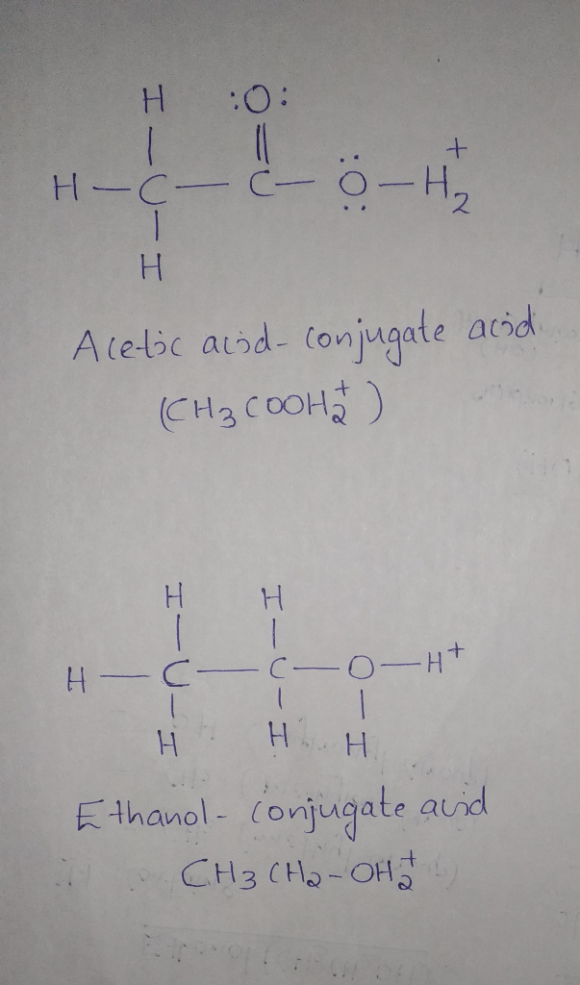 H :O:
| ||
H — C — C — Ö — H₂⁺
|
H
Acetic acid - conjugate acid
(CH3COOH₂⁺)
H H
| |
H — C — C — O — H⁺
| | |
H H H
Ethanol - conjugate acid
CH3CH2-OH₂⁺